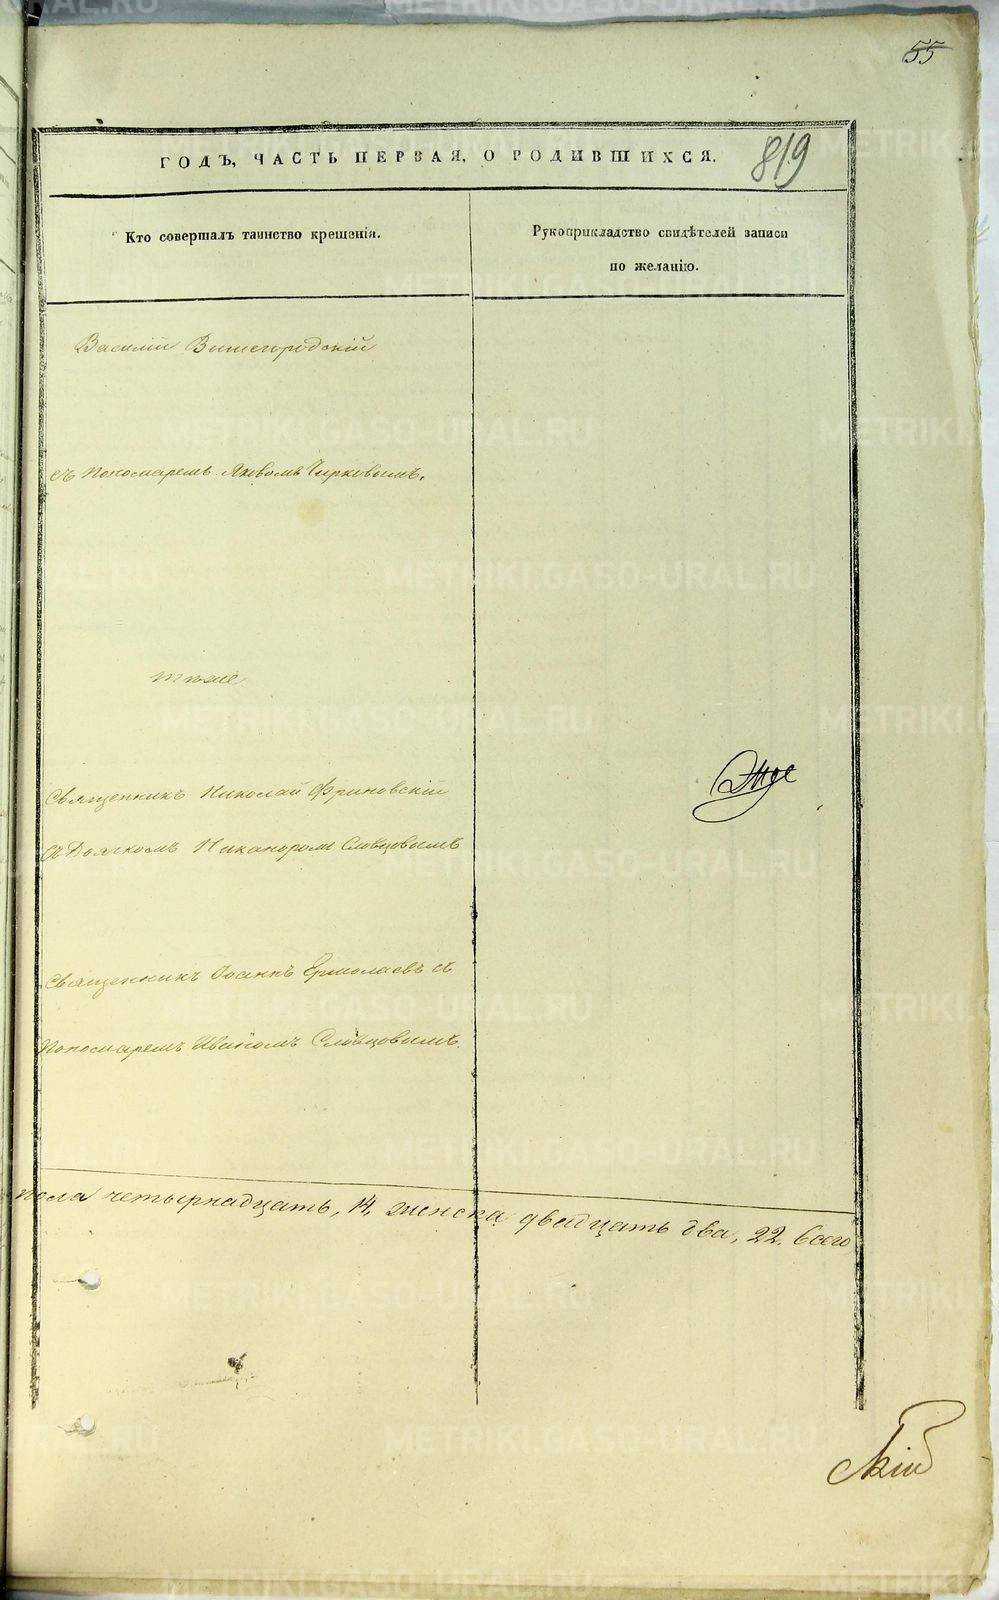 55
ГОДЪ, ЧАСТЬ ПЕРВАЯ, О РОДИВШИХСЯ.
819
Кто совершалъ таинство крещенія.
Рукоприкладство свидѣтелей записи
по желанію.
Василій Вышегородскій
съ Пономаремъ Яковомъ Чирковымъ.
тѣже
Священникъ Николай Фриновскій
съ Дьячкомъ Никаноромъ Словцовымъ
Священникъ Іоаннъ Ермолаевъ съ
Пономаремъ Иваномъ Словцовымъ.
пола четырнадцать, 14, женска двадцать два, 22. всего
METRIKI.GASO-URAL.RU